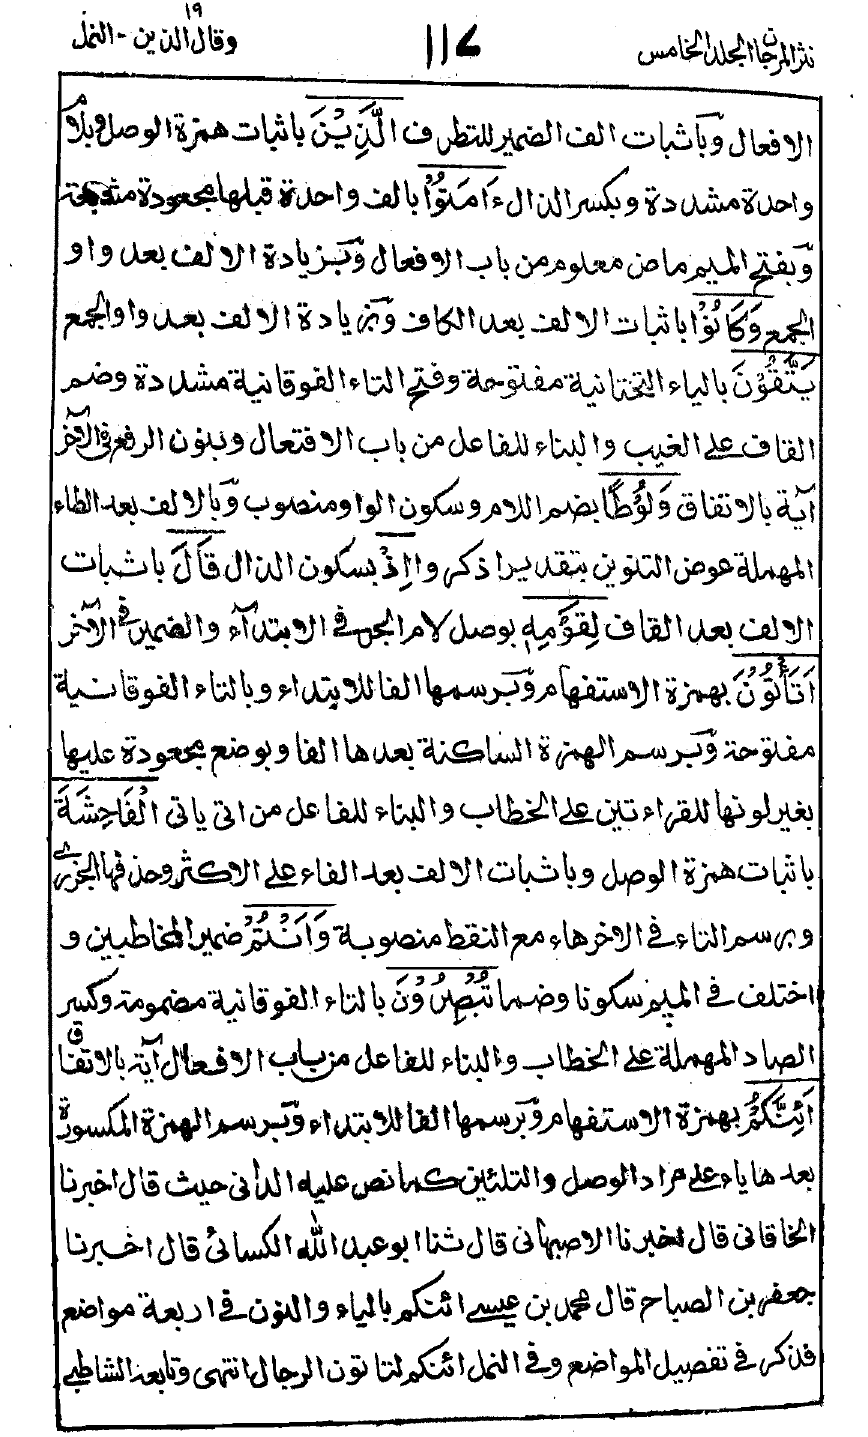 نثر المرجان المجلد الخامس
١١٧
وقال الذين ١٩ - النمل
الافعال وَباثبات الف الضمير للتطرف الَّذِيْنَ باثبات همزة الوصل وبلام
واحدة مشددة وبكسر الذال ءَامَنُوْا بالف واحدة قبلها مجعودة
وَبفتح الميم ماض معلوم من باب الافعال وَبزيادة الالف بعد واو
الجمع وَكَانُوْا باثبات الالف بعد الكاف وَبزيادة الالف بعد واو الجمع
يَتَّقُوْنَ بالياء التحتانية مفتوحة وفتح التاء الفوقانية مشددة وضم
القاف على الغيب والبناء للفاعل من باب الافتعال وبنون الرفع في الآخر
آية بالاتفاق وَلُوْطًا بضم اللام وسكون الواو منصوب وَبالالف بعد الطاء
المهملة عوض التنوين بتقدير اذكر و اِذْ بسكون الذال قَالَ باثبات
الالف بعد القاف لِقَوْمِهٖ بوصل لام الجر في الابتدآء والضمير في الآخر
اَتَأْتُوْنَ بهمزة الاستفهام وَبرسمها الفا للابتداء وبالتاء الفوقانية
مفتوحة وَبرسم الهمزة الساكنة بعدها الفا وبوضع مجعودة عليها
بغير لونها للقراءتين على الخطاب والبناء للفاعل من اتى ياتى الْفَاحِشَةَ
باثبات همزة الوصل وباثبات الالف بعد الفاء على الاكثر وحذفها الجزرى
وبرسم التاء في الاخر هاء مع النقط منصوبة وَاَنْتُمْ ضمير المخاطبين و
اختلف في الميم سكونا وضما تُبْصِرُوْنَ بالتاء الفوقانية مضمومة وكسر
الصاد المهملة على الخطاب والبناء للفاعل من باب الافعال آية بالاتفاق
اَئِنَّكُمْ بهمزة الاستفهام وَبرسمها الفا للابتداء وَبرسم الهمزة المكسورة
بعدها ياء على مراد الوصل والتليين كما نص عليه الدانى حيث قال اخبرنا
الخاقانى قال اخبرنا الاصبهانى قال ثنا ابو عبد الله الكسائى قال اخبرنا
جعفر بن الصباح قال محمد بن عيسى ائنكم بالياء والنون في اربعة مواضع
فذكر في تفصيل المواضع وفى النمل ائنكم لتاتون الرجال انتهى وتابعه الشاطبى